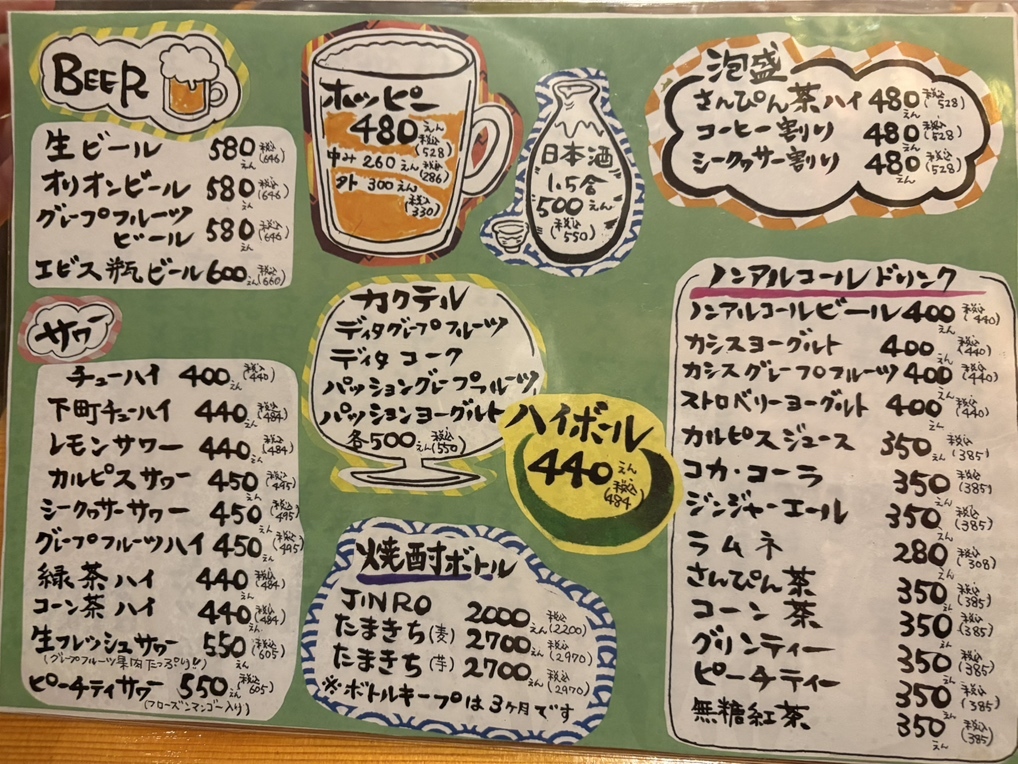 BEER
生ビール 580えん 税込(646)
オリオンビール 580えん 税込(646)
グレープフルーツ
ビール 580えん 税込(646)
エビス瓶ビール 600えん 税込(660)
サワー
チューハイ 400えん 税込(440)
下町チューハイ 440えん 税込(484)
レモンサワー 440えん 税込(484)
カルピスサワー 450えん 税込(495)
シークヮサーサワー 450えん 税込(495)
グレープフルーツハイ 450えん 税込(495)
緑茶ハイ 440えん 税込(484)
コーン茶ハイ 440えん 税込(484)
生フレッシュサワー 550えん 税込(605)
(グレープフルーツ果肉たっぷり!!)
ピーチティサワー 550えん 税込(605)
(フローズンマンゴー入り)
ホッピー
480えん 税込(528)
中み260えん 税込(286)
外 300えん 税込(330)
日本酒
1.5合
500えん
税込(550)
カクテル
ディタグレープフルーツ
ディタコーク
パッショングレープフルーツ
パッションヨーグルト
各500えん 税込(550)
ハイボール
440えん 税込(484)
焼酎ボトル
JINRO 2000えん 税込(2200)
たまきち(麦) 2700えん 税込(2970)
たまきち(芋) 2700えん 税込(2970)
※ボトルキープは3ヶ月です
泡盛
さんぴん茶ハイ 480えん 税込(528)
コーヒー割り 480えん 税込(528)
シークヮサー割り 480えん 税込(528)
ノンアルコールドリンク
ノンアルコールビール 400えん 税込(440)
カシスヨーグルト 400えん 税込(440)
カシスグレープフルーツ 400えん 税込(440)
ストロベリーヨーグルト 400えん 税込(440)
カルピスジュース 350えん 税込(385)
コカ・コーラ 350えん 税込(385)
ジンジャーエール 350えん 税込(385)
ラムネ 280えん 税込(308)
さんぴん茶 350えん 税込(385)
コーン茶 350えん 税込(385)
グリンティー 350えん 税込(385)
ピーチティー 350えん 税込(385)
無糖紅茶 350えん 税込(385)